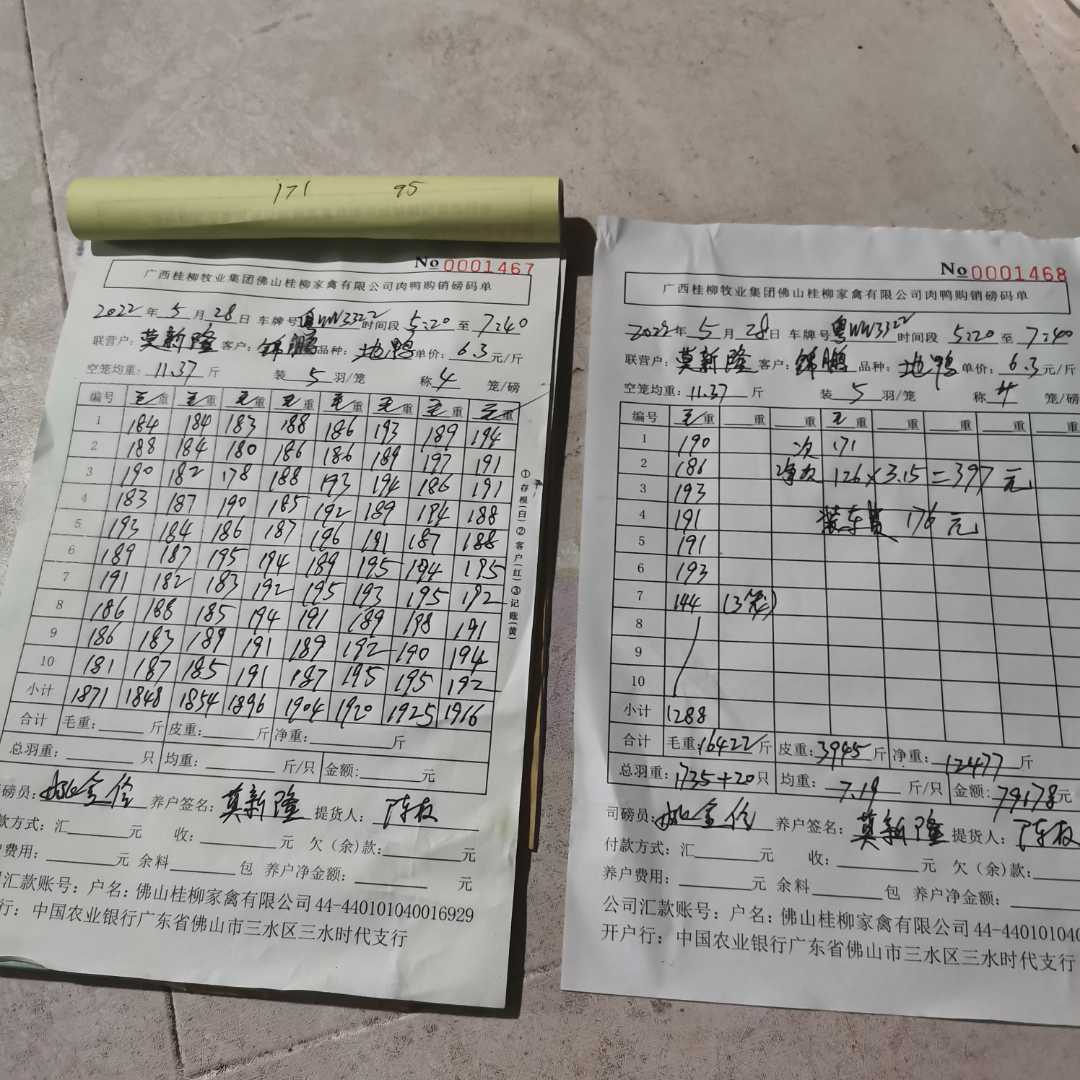 171 95
No 0001467
广西桂柳牧业集团佛山桂柳家禽有限公司肉鸭购销磅码单
2022年 5月28日 车牌号粤WW3322时间段 5:20至 7:40
联营户:莫新隆 客户:锦鹏 品种:地鸭 单价:6.3元/斤
空笼均重:11.37斤 装 5 羽/笼 称 4 笼/磅
编号 毛重 毛重 毛重 毛重 毛重 毛重 毛重 毛重
1 184 184 183 188 186 193 189 194
2 188 184 180 186 186 189 197 191
3 190 182 178 188 193 194 186 191
4 183 187 190 185 192 189 184 188
5 193 184 186 187 196 191 187 188
6 189 187 195 194 189 195 194 195
7 191 182 183 192 195 193 195 192
8 186 188 185 194 191 189 198 191
9 186 183 189 191 189 192 190 194
10 181 187 185 191 187 195 195 192
小计 1871 1848 1854 1896 1904 1920 1925 1916
合计 毛重: 斤 皮重: 斤 净重: 斤
总羽重: 只 均重: 斤/只 金额: 元
磅员: 养户签名:莫新隆 提货人:
款方式:汇 元 收: 元 欠(余)款: 元
户费用: 元 余料 包 养户净金额: 元
汇款账号:户名:佛山桂柳家禽有限公司44-440101040016929
行:中国农业银行广东省佛山市三水区三水时代支行
①存根(白)②客户(红)③记账(黄)
No 0001468
广西桂柳牧业集团佛山桂柳家禽有限公司肉鸭购销磅码单
2022年 5月 28日 车牌号粤WW3322 时间段 5:20 至 7:40
联营户:莫新隆 客户:锦鹏 品种:地鸭 单价:6.3元/斤
空笼均重:11.37斤 装 5 羽/笼 称 4 笼/磅
编号 毛重 重 重 毛重 重 重 重
1 190 次 171
2 186 净次 126×3.15=397元
3 193
4 191 装车费 176元
5 191
6 193
7 144 (3笼)
8
9
10
小计 1288
合计 毛重:16422斤 皮重:3945斤 净重:12477斤
总羽重:1735+20只 均重:7.19斤/只 金额:79178元
司磅员: 养户签名:莫新隆 提货人:
付款方式:汇 元 收: 元 欠(余)款:
养户费用: 元 余料 包 养户净金额:
公司汇款账号:户名:佛山桂柳家禽有限公司44-44010104
开户行:中国农业银行广东省佛山市三水区三水时代支行